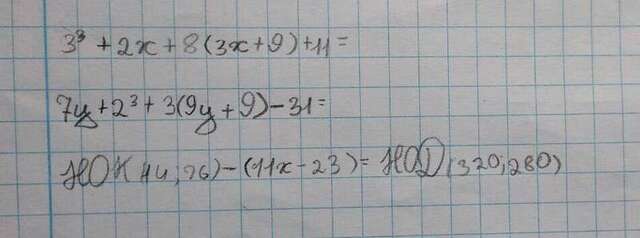 3³ + 2x + 8(3x+9)+11=
7y+2³+3(9y+9)-31=
НОК(44;76)-(11x-23)= НОД(320;280)